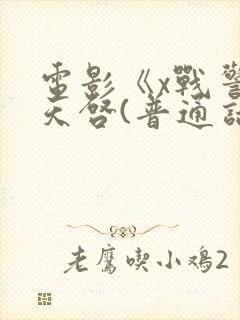 電影《x戰警
天啓(普通話
老鷹喫小鳮2